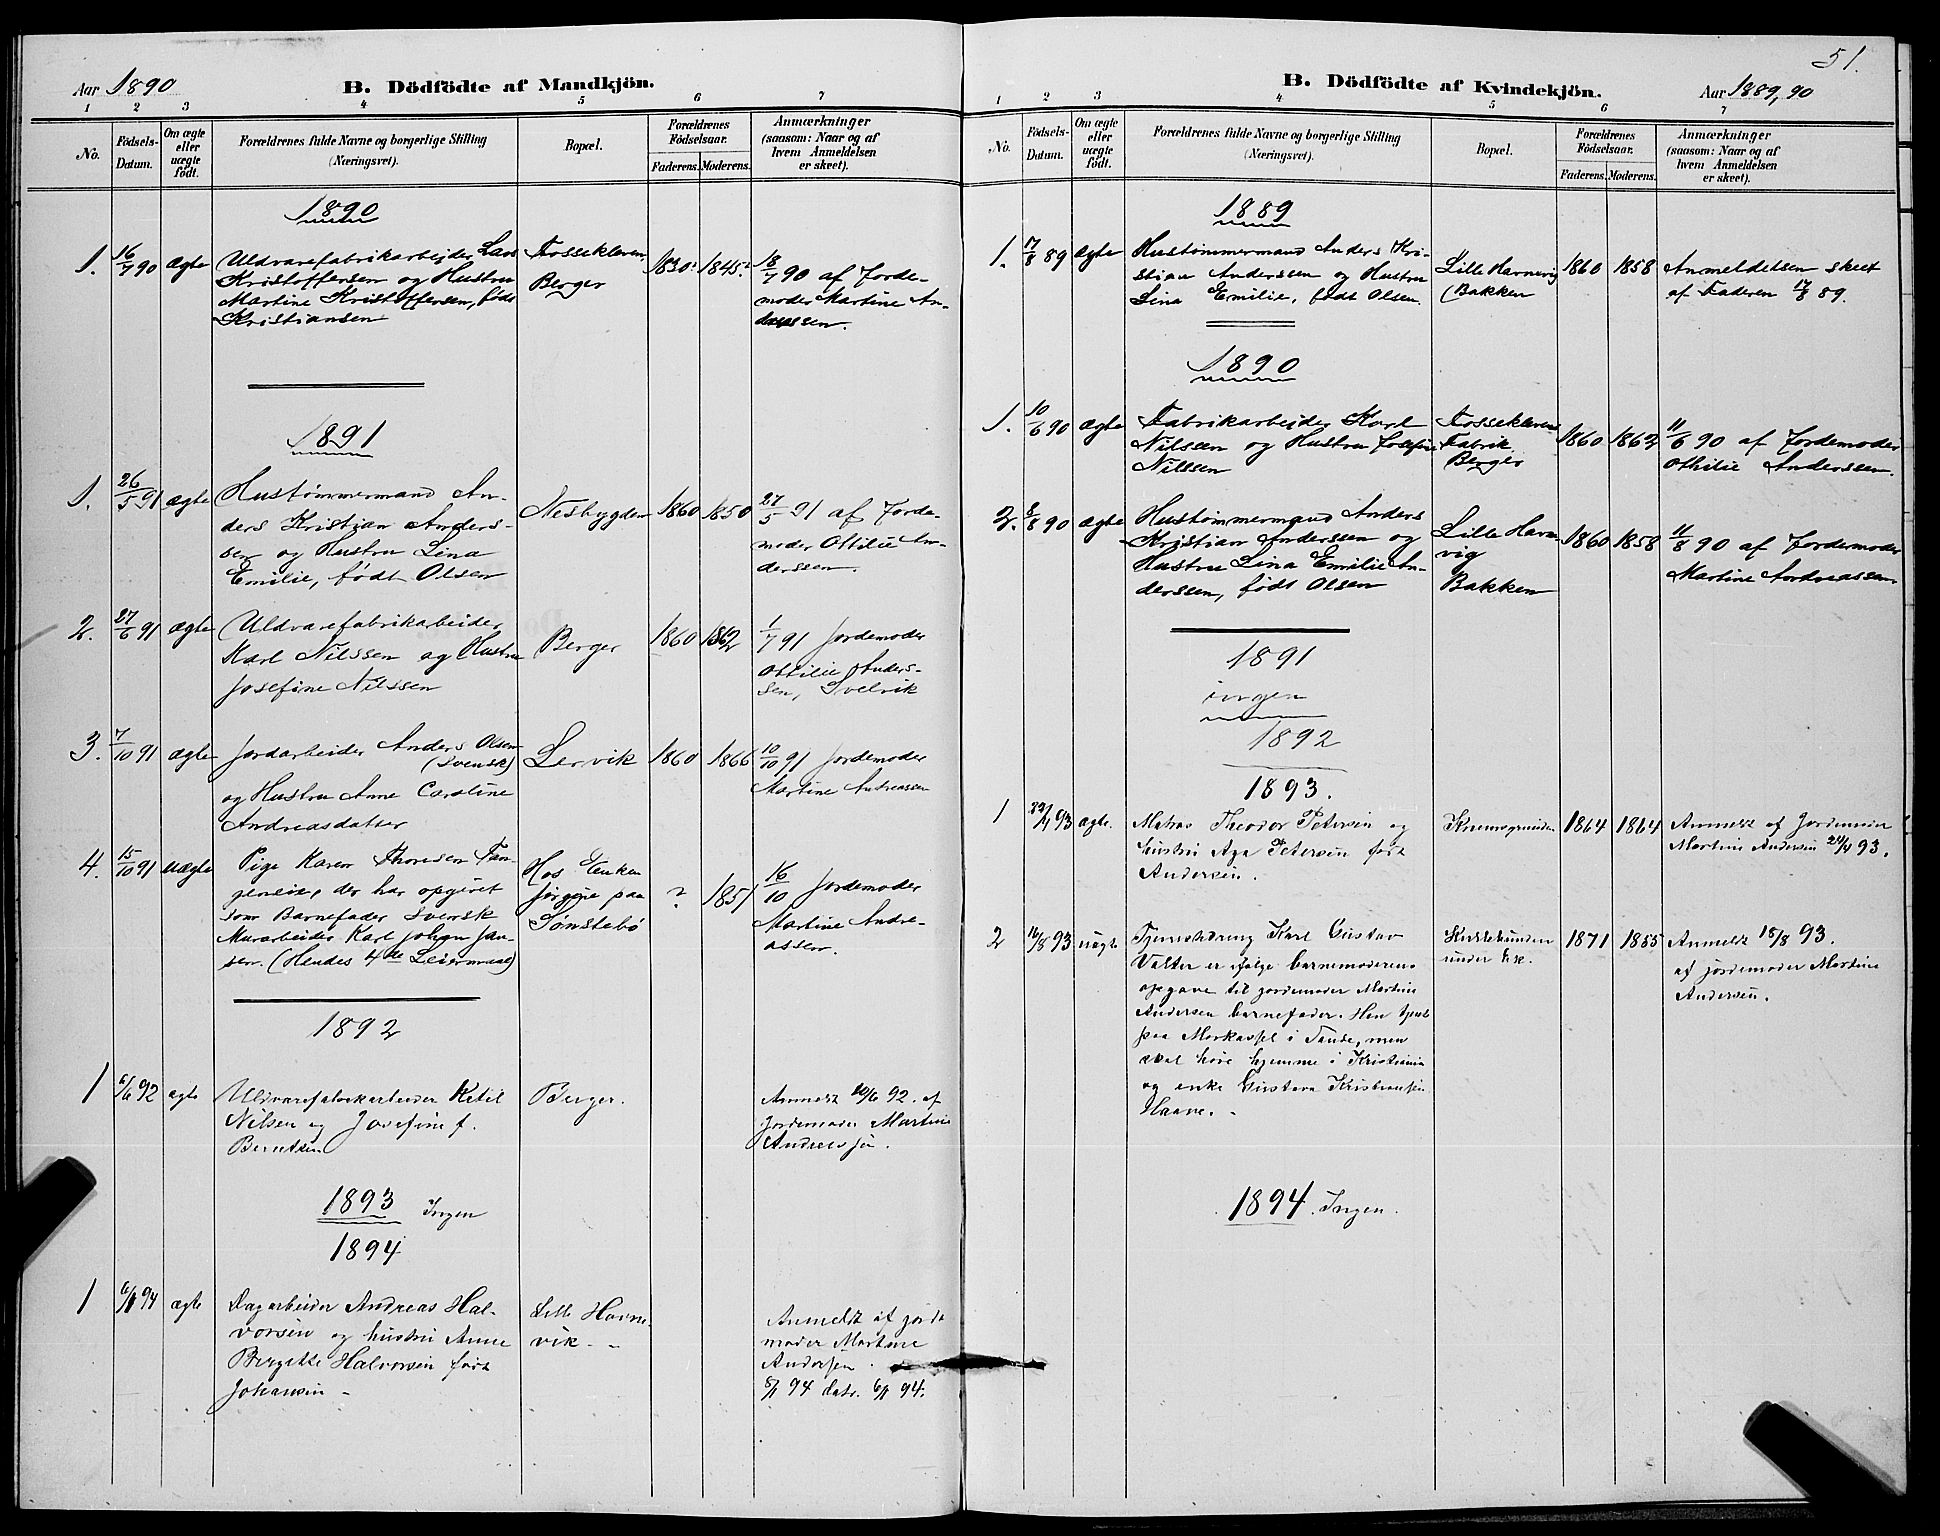 Aar 1890
B. Dödfödte af Mandkjön.
1 2 3 4 5 6 7
No.
Födsels-
Datum.
Om ægte
eller
uægte
födt.
Forældrenes fulde Navne og borgerlige Stilling
(Næringsvei).
Bopæl.
Forældrenes
Födselsaar.
Faderens. Moderens.
Anmærkninger
(saasom: Naar og af
hvem Anmeldelsen
er skeet).
1890
1. 16/7 90 ægte
Uldvarefabrikarbejder Lars
Kristoffersen og Hustru
Martine Kristoffersen, født
Kristiansen
Fossekleven
Berger
1830? 1845?
18/7 90 af Jorde-
moder Martine An-
dreassen.
1891
1. 26/5 91 ægte
Hustømmermand An-
ders Kristian Anders-
sen og Hustru Lina
Emilie, født Olsen
Nesbygden
1860 1850
27/5 91 af Jorde-
moder Ottilie An-
derssen.
2. 27/6 91 ægte
Uldvarefabrikarbeider
Karl Nilssen og Hustru
Josefine Nilssen
Berger
1860 1862
1/7 91 Jordemoder
Ottilie Anders-
sen, Svelvik
3. 7/10 91 ægte
Jordarbeider Anders Olsen
(svensk)
og Hustru Anne Caroline
Andreasdatter
Lervik
1860 1866
10/10 91 Jordemoder
Martine Andreassen
4. 15/10 91 uægte
Pige Karen Thoresen Tan-
geneie, der har opgivet
som Barnefader svensk
Murarbeider Karl Johan Jan-
sen. (Hendes 4de Leiermaal)
Hos Enken
Jørgine paa
Tømstebö
? 1851
16/10 Jordemoder
Martine Andre-
assen.
1892
1 6/6 92 ægte
Uldvarefabrikarbeider Ketil
Nilsen og Josefine f.
Berntsen
Berger.
Anmeldt 10/6 92. af
Jordemoder Martine
1893 Ingen
1894
1 6/1 94 ægte
Dagarbeider Andreas Hal-
vorsen og hustru Anne
Birgitte Halvorsen født
Johansen -
Lille Havne-
vik. -
Anmeldt af jorde
moder Martine
Andersen.
8/1 94 datr. 6/1 94.
51.
B. Dödfödte af Kvindekjön.
Aar 1889, 90
1 2 3 4 5 6 7
No.
Födsels-
Datum.
Om ægte
eller
uægte
födt.
Forældrenes fulde Navne og borgerlige Stilling
(Næringsvei).
Bopæl.
Forældrenes
Födselsaar.
Faderens. Moderens.
Anmærkninger
(saasom: Naar og af
hvem Anmeldelsen
er skeet).
1889
1. 17/8 89 ægte
Hustømmermand Anders Kri-
stian Anderssen og Hustru
Lina Emilie, født Olsen.
Lille Havnevig
(Bakken
1860 1858
Anmeldelsen skeet
af Faderen 17/8 89.
1890
1. 10/6 90 ægte
Fabrikarbeider Karl
Nilssen og Hustru Josefine
Nilssen
Fossekleven
Fabrik
Berger
1860 1862
11/6 90 af Jordemoder
Othilie Anderssen.
2. 8/8 90 ægte
Hustømmermand Anders
Kristian Anderssen og
Hustru Lina Emilie An-
derssen, født Olsen
Lille Havn-
vig
Bakken
1860 1858
11/8 90 af Jordemoder
Martine Andreassen
1891
ingen
1892
1893.
1 93 ægte.
Matros Theodor Petersen og
hustru Aga Petersen født
Andersen.
1864 1864
Anmeldt af Jordemoder
Martine Andersen 24/4 93.
2 16/8 93 uægte
Tjenestedreng Karl Gustav
Valter er ifølge barnemoderens
opgave til jordemoder Martine
Andersen barnefader. Han tjente
paa i Sande, men
skal høre hjemme i Kristiania
og enke Gustava Kristiansen
Haave. -
under Ek.
1871 1855
Anmeldt 18/8 93.
af jordemoder Martine
Andersen.
1894. Ingen.